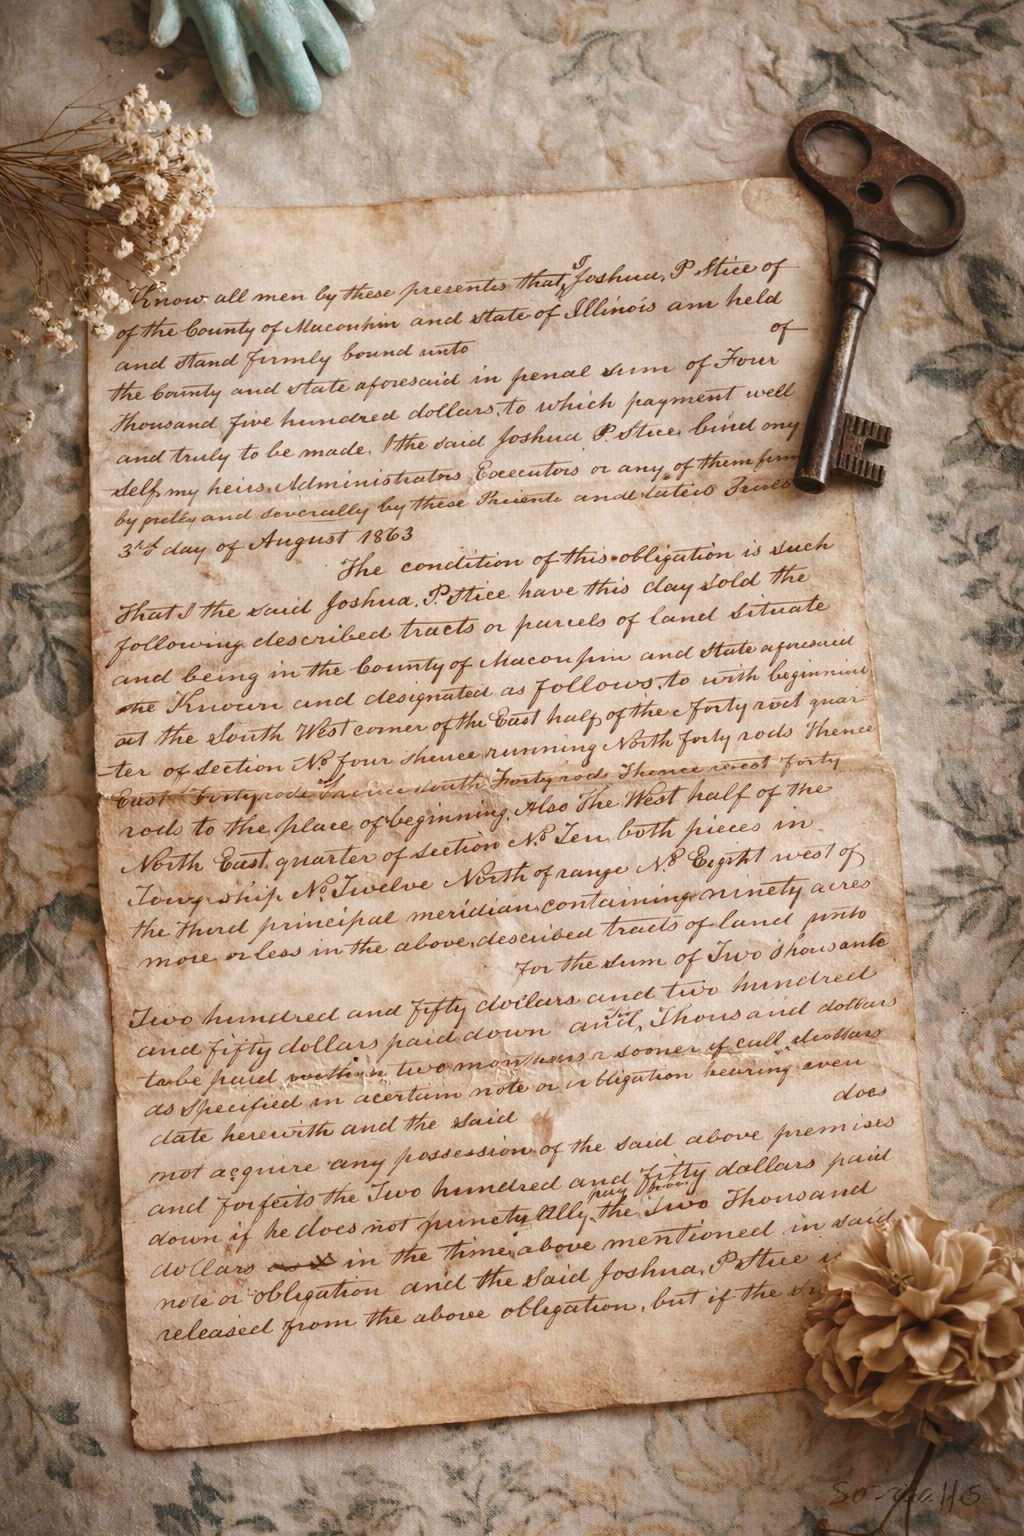 Know all men by these presents that I Joshua, P Stice of
of the County of Macoupin and state of Illinois am held
and stand firmly bound unto of
the County and state aforesaid in penal sum of Four
Thousand five hundred dollars, to which payment well
and truly to be made. I the said Joshua P. Stice, bind my
self, my heirs Administrators Executors or any of them firm
by and severally by these
3rd day of August 1863
The condition of this obligation is such
That I the said Joshua, P. Stice have this day sold the
following described tracts or parcels of land situate
and being in the County of Macoupin and State aforesaid
Known and designated as follows, to with beginning
at the South West corner of the East half of the forty rod quar
-ter of section No four thence running North forty rods Thence
East Forty rods Thence south Forty rods Thence west forty
rods to the place of beginning, Also The West half of the
North East quarter of section No Ten both pieces in
Township No Twelve North of range No Eight west of
the third principal meridian containing ninety acres
more or less in the above described tracts of land unto
For the sum of Two thousante
Two hundred and fifty dollars and two hundred
and fifty dollars paid down and, Thousand dollars
to be paid within two sooner if call
as specified in acertain note or obligation bearing even
date herewith and the said does
not acquire any possession of the said above premises
and forfeits the Two hundred and fifty dollars paid
down if he does not pay the Two Thousand
dollars in the time above mentioned in said
note or obligation and the said Joshua, P Stice
released from the above obligation, but if the